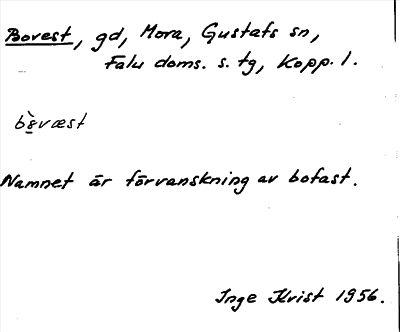 Bovest, gd, Mora, Gustafs sn,
Falu doms. s. tg, Kopp. l.
Namnet är förvanskning av bofast.
Inge Kvist 1956.